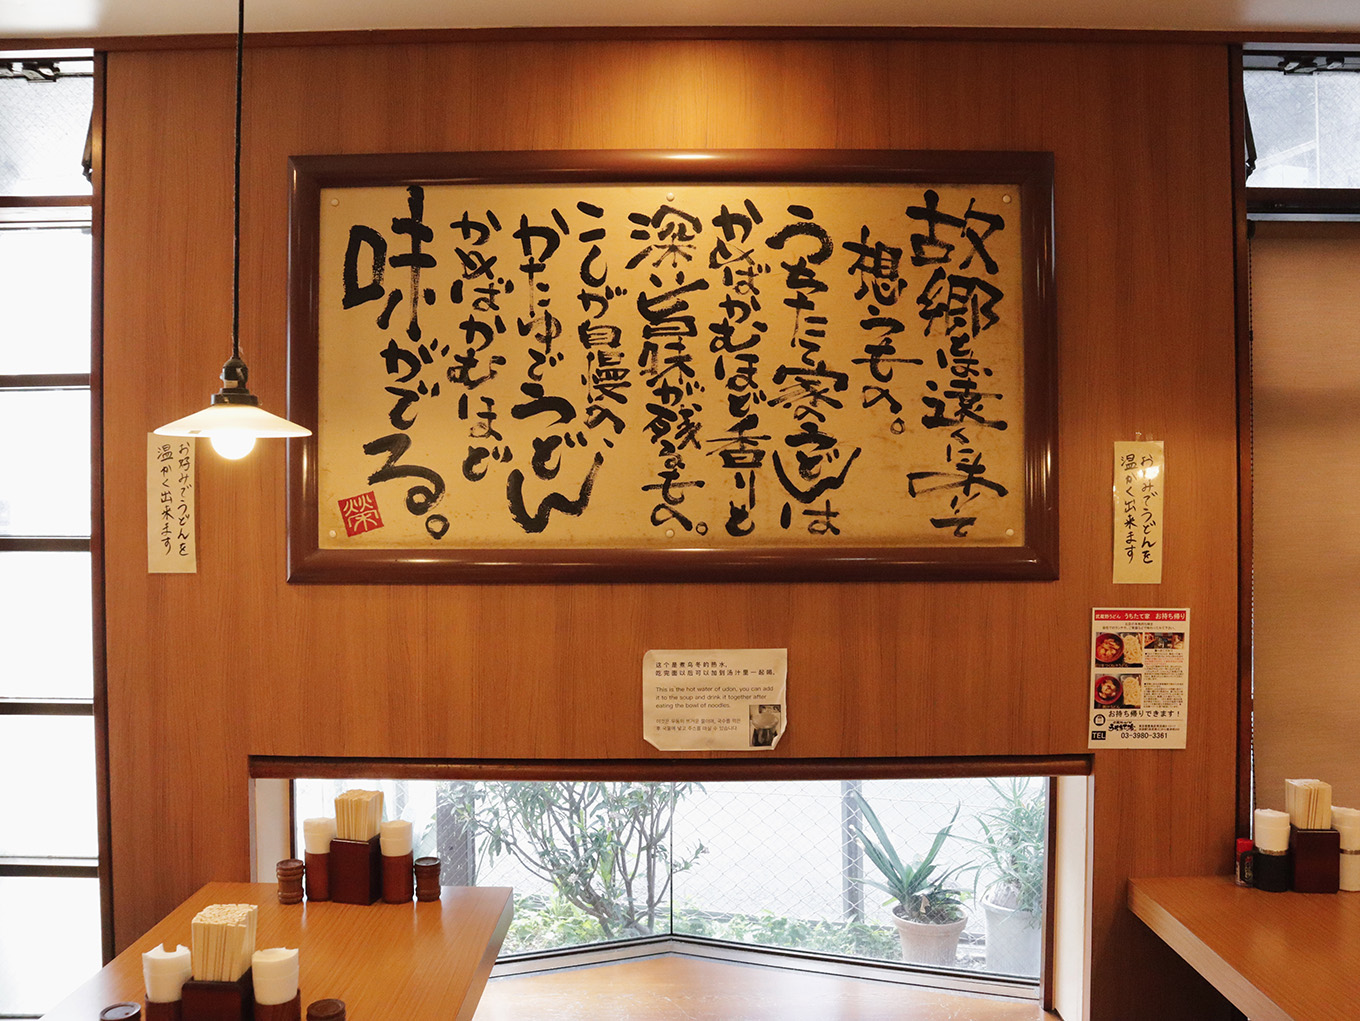 故郷とは遠くに来りて
想うもの。
うちたて家のうどんは
かめばかむほど香りと
深い旨味が残るもの。
こしが自慢の、
かたゆでうどん
かめばかむほど
味がでる。
お好みでうどんを
温かく出来ます
お好みでうどんを
温かく出来ます
这个是煮乌冬的热水,
吃完面以后可以加到汤汁里一起喝,
This is the hot water of udon, you can add
it to the soup and drink it together after
eating the bowl of noodles.
武蔵野うどん うちたて家 お持ち帰り
お持ち帰りできます!
うちたて家
TEL 03-3980-3361